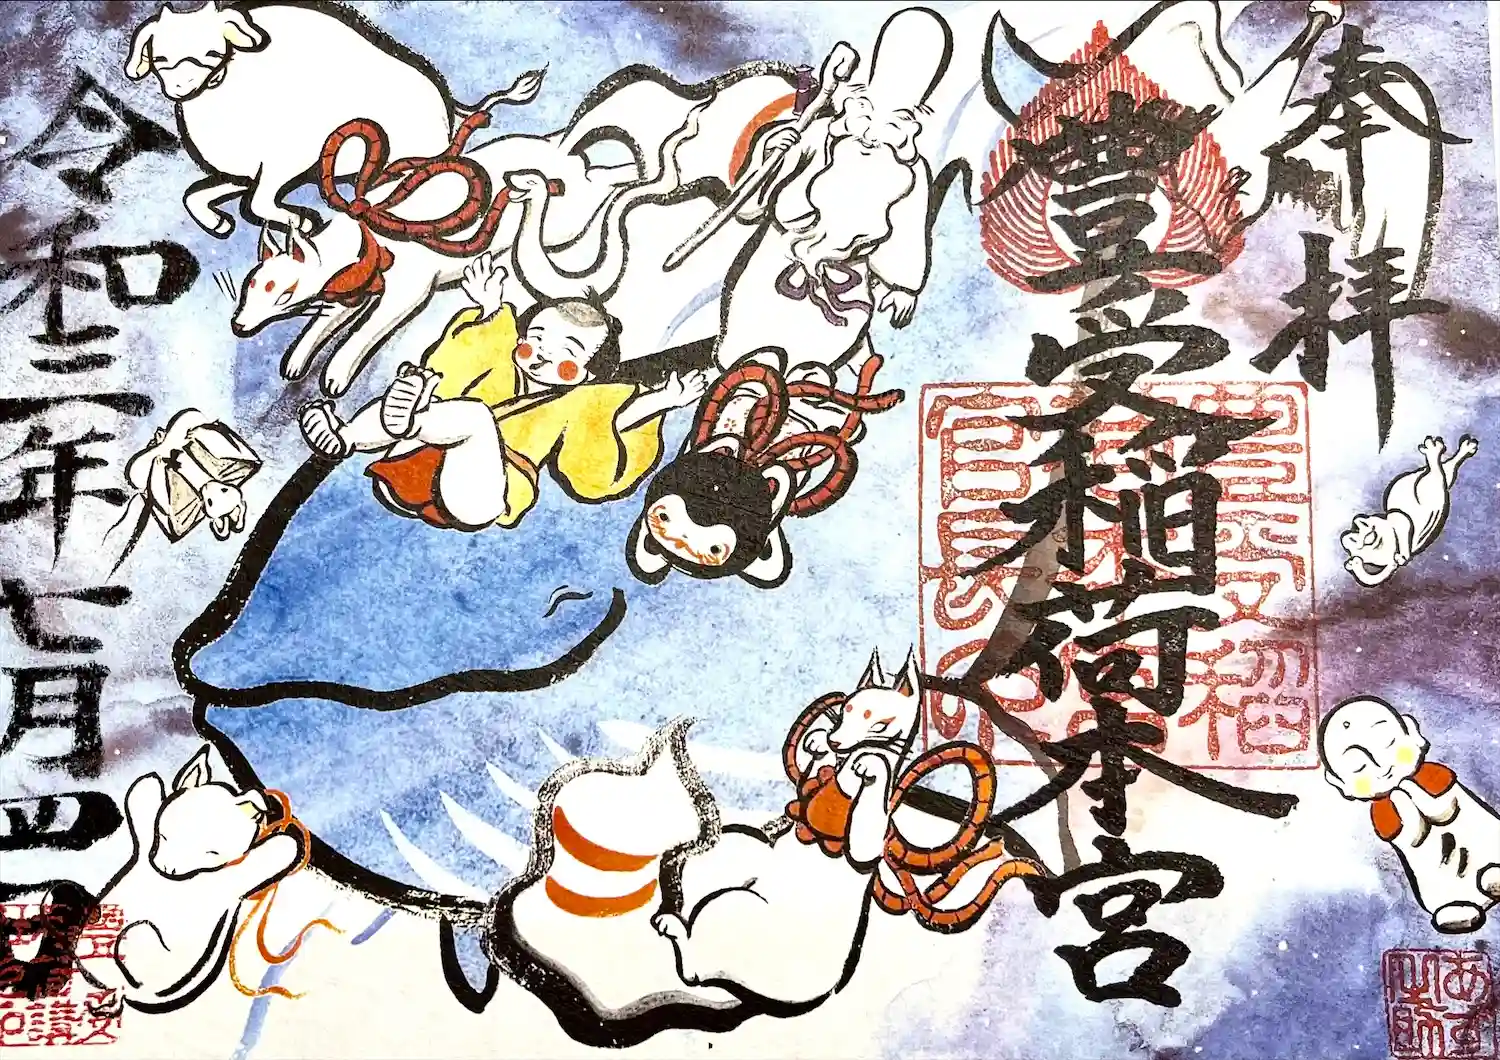 奉拝
豊受稲荷本宮
令和三年七月四日